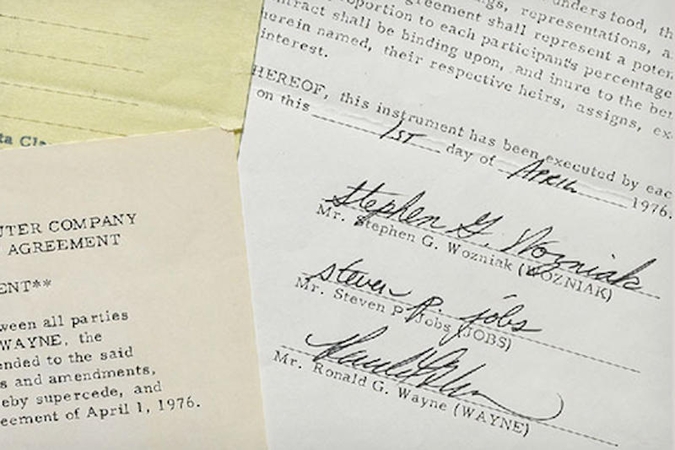 understood, th
representations, a
agreement shall represent a poten
roportion to each participant's percentage
tract shall be binding upon, and inure to the ben
herein named, their respective heirs, assigns, ex
interest.
HEREOF, this instrument has been executed by eac
on this 1st day of April 1976.
Stephen G. Wozniak
Mr. Stephen G. Wozniak (WOZNIAK)
steven P. jobs
Mr. Steven P. Jobs (JOBS)
Mr. Ronald G. Wayne (WAYNE)
ta Cla
UTER COMPANY
AGREEMENT
ENT**
ween all parties
WAYNE, the
ended to the said
s and amendments,
eby supercede, and
eement of April 1, 1976.